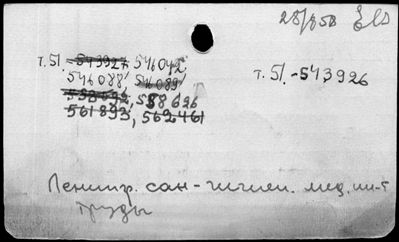 28/VSD
т. 51. 543927, 546042
546088, 546089,
т. 51. - 543926
552696, 558626
561893, 562461
Ленингр. сан-гигиен. мед. ин-т
Труды